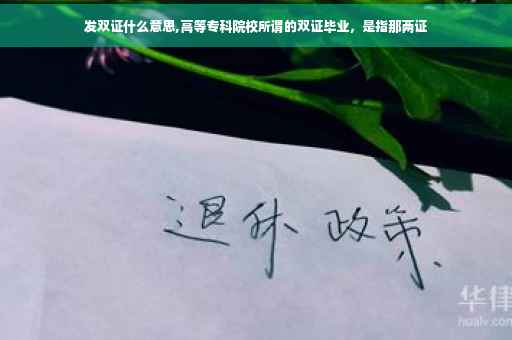 发双证什么意思,高等专科院校所谓的双证毕业，是指那两证
退休 政策
华律
hualv.com